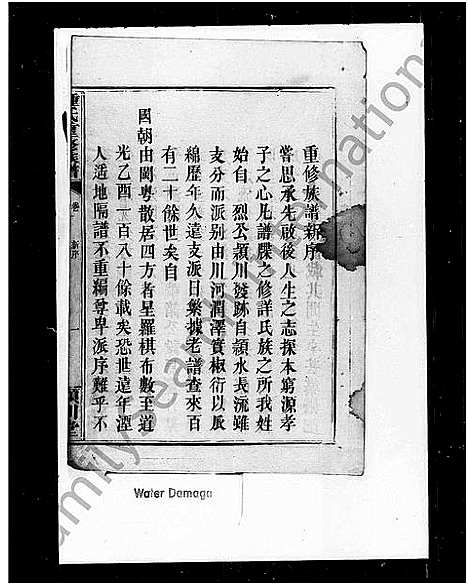 重修族譜新序
嘗思承先啟後人生之志探本窮源孝
子之心凡譜牒之修詳氏族之所我姓
始自 烈公潁川發跡自潁水長流雖
支分而派別由川河潤澤實椒衍以辰
綿歷年久遠支派日樂據老譜查來百
有二十餘世矣自
國朝由閩粵散居四方者星羅棋布數至道
光乙酉一百八十餘載矣恐世遠年湮
人遙地隔譜不重編尊卑派序難乎不
重修族譜
卷
新序
潁川堂
Water Damage